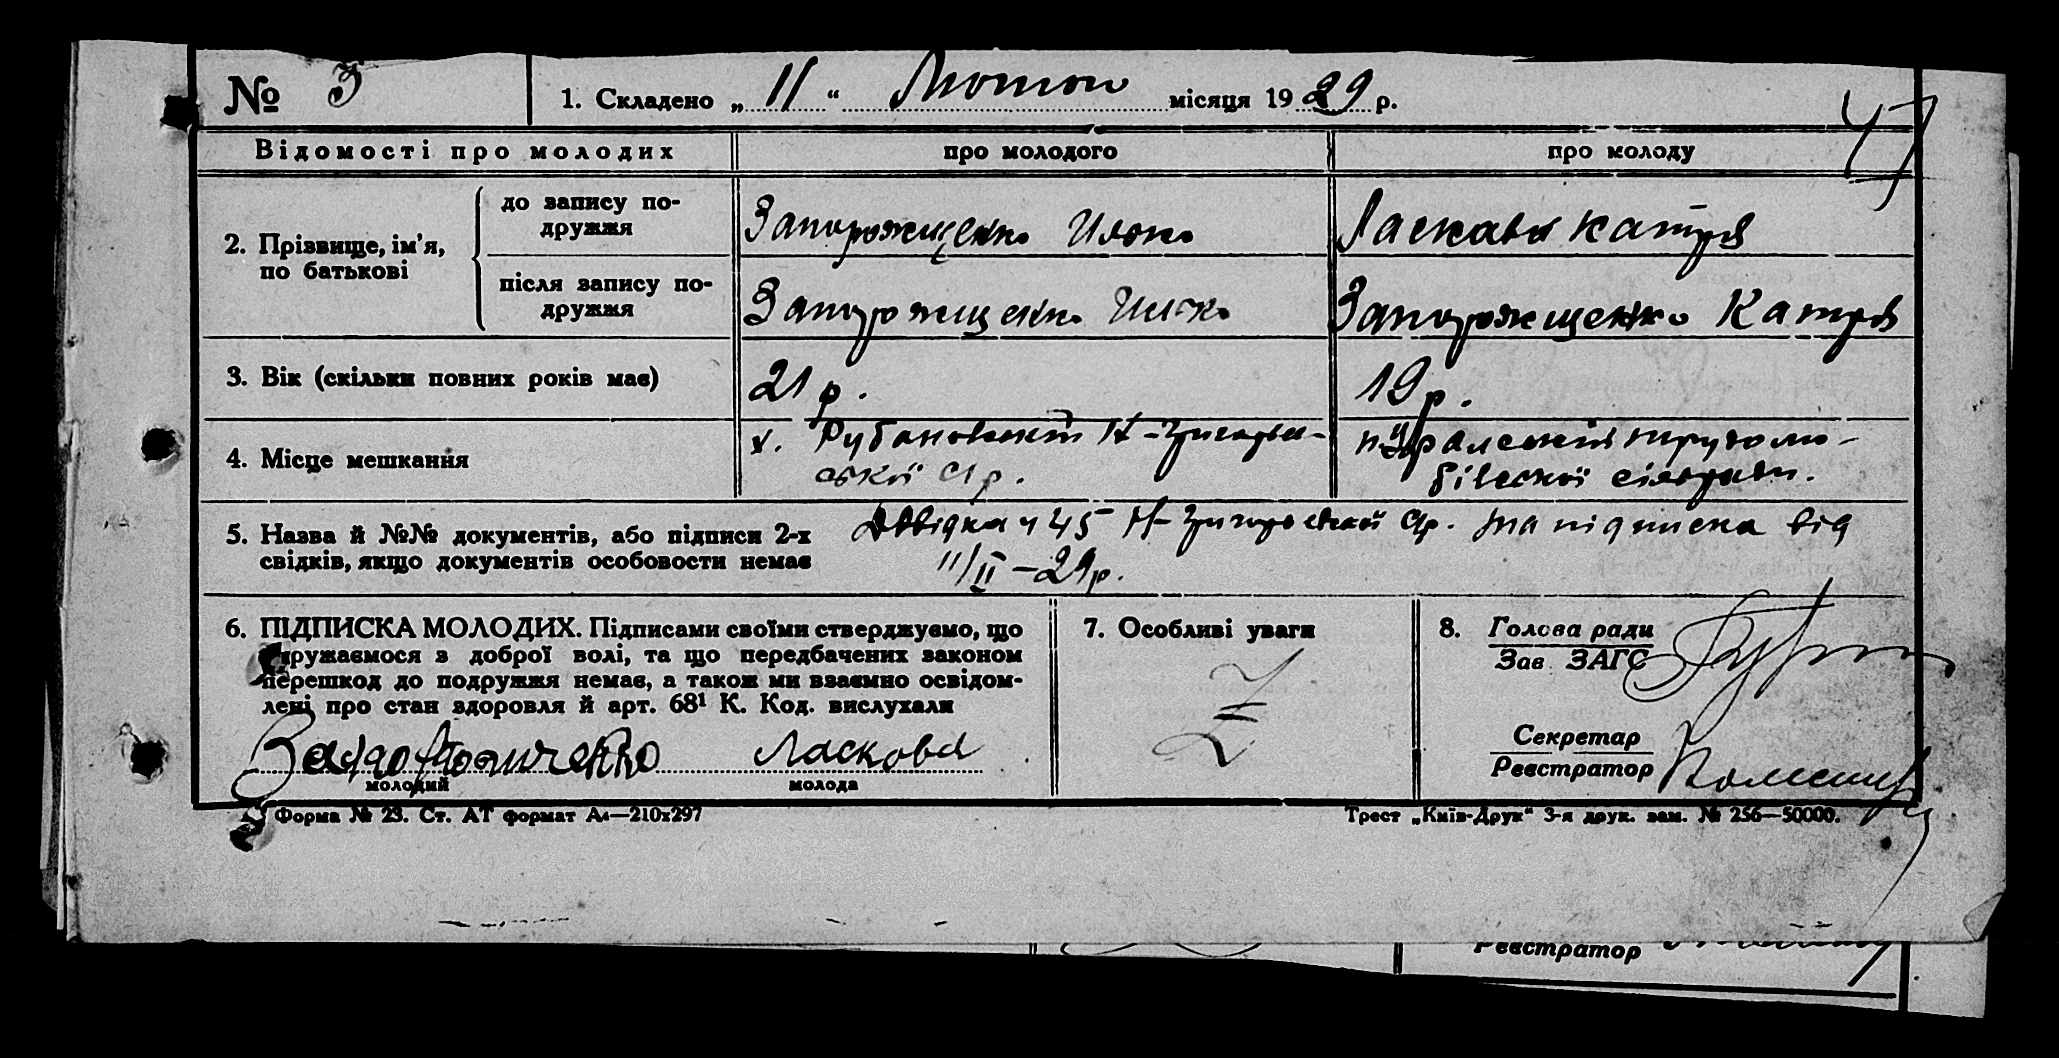 № 3 1. Складено „11“ Лютого місяця 1929 р.
47
Відомості про молодих про молодого про молоду
2. Прізвище, ім'я, по батькові
до запису подружжя
Запорожщенко Илько Ласкава Катря
після запису подружжя
Запорожщенко Илько Запорожщенко Катря
3. Вік (скільки повних років має) 21 р. 19 р.
4. Місце мешкання х. Н-Григорів-
ської С/р. білської сільради.
5. Назва й №№ документів, або підписи 2-х Довідка ч 45 Н-Григорівської С/р. та підписка від
свідків, якщо документів особовости немає 11/II–29р.
6. ПІДПИСКА МОЛОДИХ. Підписами своїми стверджуємо, що
дружаємося з доброї волі, та що передбачених законом
перешкод до подружжя немає, а також ми взаємно освідом-
лені про стан здоровля й арт. 68¹ К. Код. вислухали
Ласкова
молодий молода
7. Особливі уваги
8. Голова ради
Зав ЗАГС
Секретар
Реєстратор
Форма № 23. Ст. АТ формат А4—210х297 Трест „Київ-Друк“ 3-я друк. зам. № 256—50000.
Реєстратор